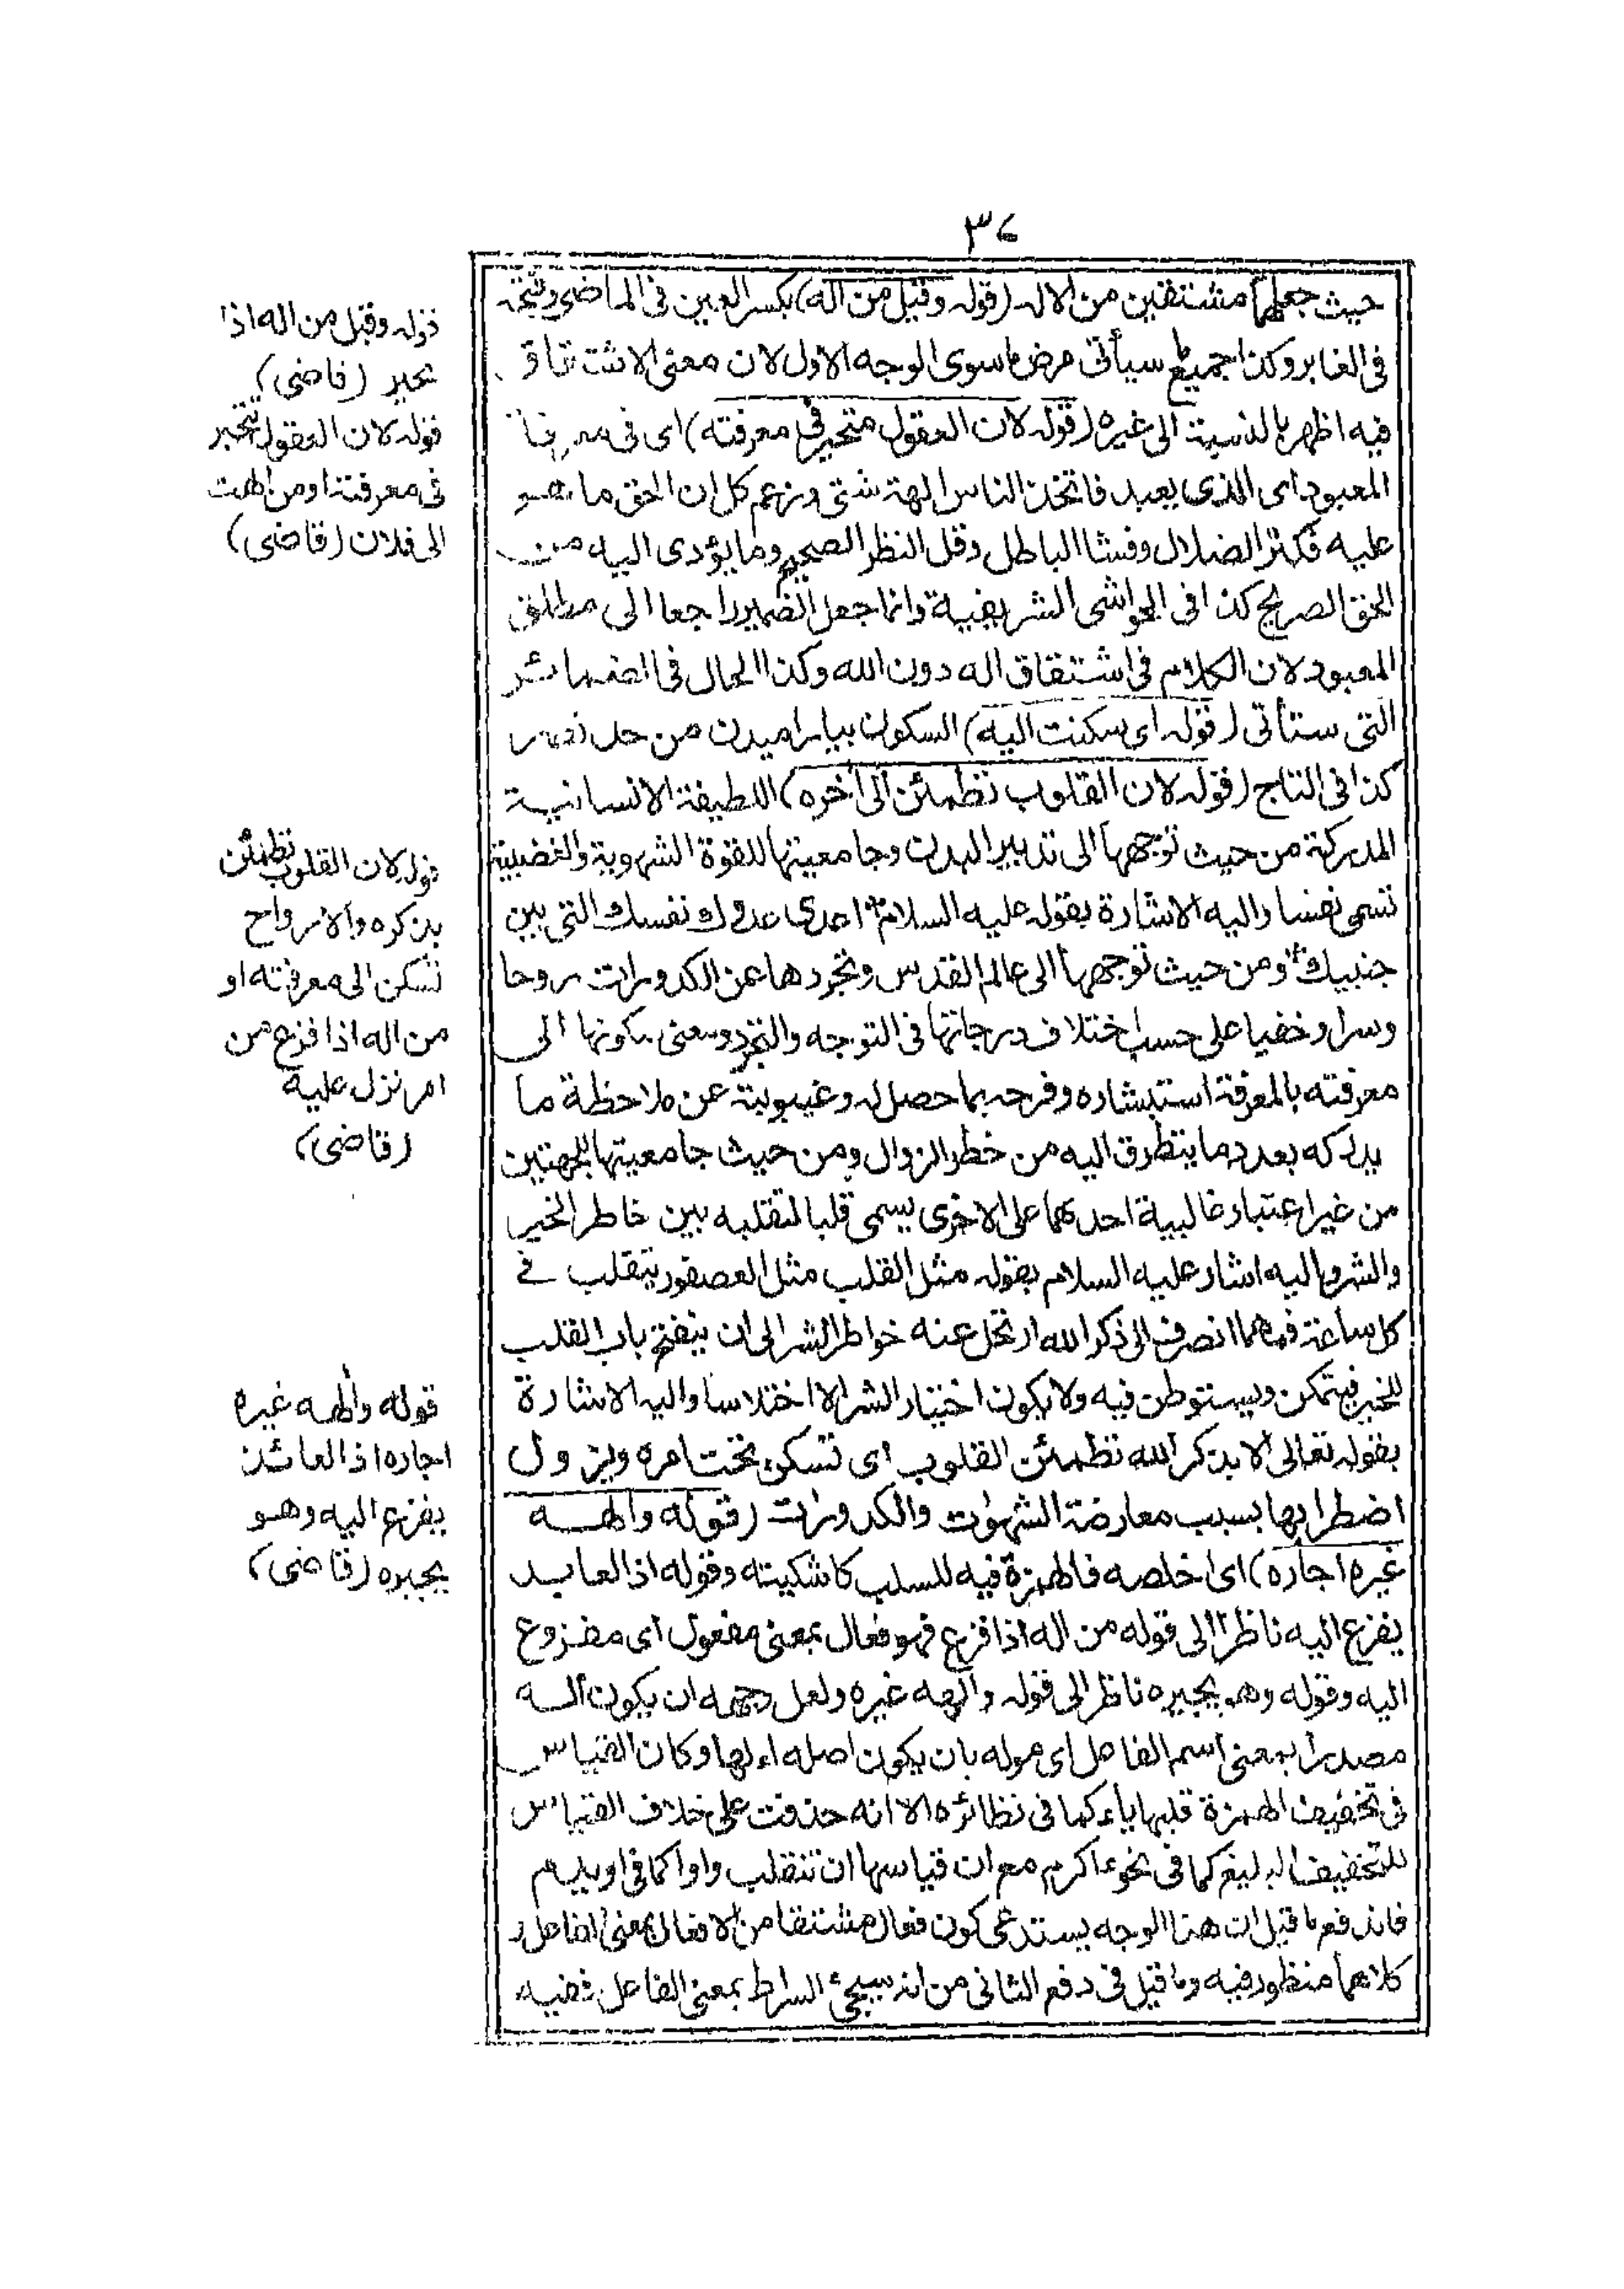 ٣٤
حيث جعلهما مشتقين من الاله (قوله وقيل من اله) بكسر العين فى الماضى وفتحه
فى الغابر وكذا جميع ما سيأتى مرض ما سوى الوجه الاول لان معنى الاشتقاق
فيه اظهر بالنسبة الى غيره (قوله لان العقول متحير فى معرفته) اى فى
المعبود اى الذى يعبد فاتخذ الناس الهة شتى وزعم كل ان الحق ما هو
عليه فكثر الضلال وفشا الباطل وقل النظر الصحيح وما يؤدى اليه من
الحق الصريح كذا فى الحواشى الشريفية وانما جعل الضمير راجعا الى مطلق
المعبود لان الكلام فى اشتقاق اله دون الله وكذا الحال فى الضمائر
التى ستأتى (قوله اى سكنت اليه) السكون بياراميدن من حد
كذا فى التاج (قوله لان القلوب تطمئن الى أخره) اللطيفة الانسانية
المدركة من حيث توجهها الى تدبير البدن وجامعيتها للقوة الشهوية والغضبية
تسمى نفسا واليه الاشارة بقوله عليه السلام اعدى عدوك نفسك التى بين
جنبيك ومن حيث توجهها الى عالم القدس وتجردها عن الكدورات روحا
وسرا وخفيا على حسب اختلاف درجاتها فى التوجه والتجرد ومعنى سكونها الى
معرفته بالمعرفة استبشاره وفرحه بما حصل له وغيبوبته عن ملاحظة ما
يدركه بعد وما يتطرق اليه من خطر الزوال ومن حيث جامعيتها للجهتين
من غير اعتبار غالبية احدهما على الاخرى يسمى قلبا لتقلبه بين خاطر الخير
والشر واليه اشار عليه السلام بقوله مثل القلب مثل العصفور يتقلب فے
كل ساعة فمهما انصرف الى ذكر الله ارتحل عنه خواطر الشر الى ان ينفتح باب القلب
للخير فيتمكن ويستوطن فيه ولا يكون اختيار الشر الا اختلاسا واليه الاشارة
بقوله تعالى الا بذكر الله تطمئن القلوب اى تسكن تحت امره ويزول
اضطرابها بسبب معارضة الشهوات والكدورات (قوله والهه
غيره اجاره) اى اخلصه فالهمزة فيه للسلب كاشكيته وقوله اذ العابد
يفزع اليه ناظر الى قوله من اله اذا فزع فهو فعال بمعنى مفعول اى مفزوع
اليه وقوله وهو يجيره ناظر الى قوله والهه غيره ولعل وجهه ان يكون اله
مصدرا بمعنى اسم الفاعل اى موله بان يكون اصله ءالها وكان القياس
فى تخفيف الهمزة قلبها ياء كما فى نظائره الا انه حذفت على خلاف القياس
للتخفيف البليغ كما فى نحو ءاكرم مع ان قياسها ان تنقلب واوا كما فى اويدم
فاندفع ما قيل ان هذا الوجه يستدعى كون فعال مشتقا من الافعال بمعنى الفاعل و
كلاهما منظور فيه وما قيل فى دفع الثانى من انه سيجئ السراط بمعنى الفاعل ففيه
قوله وقيل من اله اذا
تحير (قاضى)
قوله لان العقول تتحير
فى معرفته او من الهت
الى فلان (قاضى)
قوله لان القلوب تطمئن
بذكره والارواح
تسكن الى معرفته او
من اله اذا فزع من
امر نزل عليه
(قاضى)
قوله والهه غيره
اجاره اذ العائذ
يفزع اليه وهو
يجيره (قاضى)